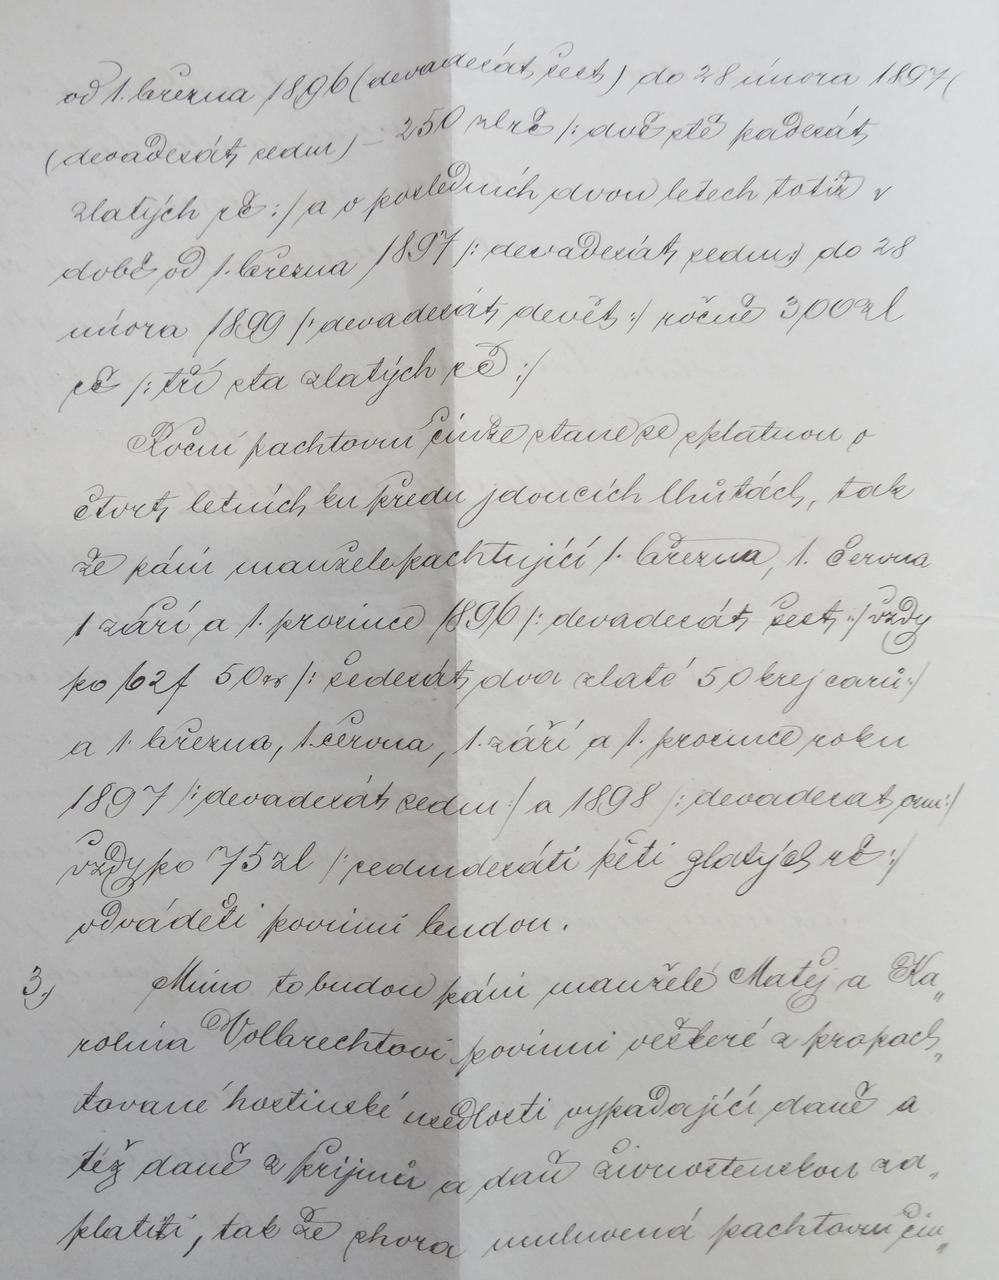 od 1. března 1896 (devadesát šest) do 28 února 1897 (
(devadesát sedm) – 250 zl rč /: dvě stě padesát
zlatých rč :/ a v posledních dvou letech totiž v
době od 1. března 1897 /: devadesát sedm :/ do 28
února 1899 /: devadesát devět :/ ročně 300 zl
rč /: tři sta zlatých rč :/
Roční pachtovní činže stane se splatnou v
čtvrt letních ku předu jdoucích lhůtách, tak
že páni manželé pachtující 1. března, 1. června
1 září a 1. prosince 1896 /: devadesát šest :/ vždy
po 62 f 50 kr /: šedesát dva zlaté 50 krejcarů :/
a 1. března, 1. června, 1. září a 1. prosince roku
1897 /: devadesát sedm :/ a 1898 /: devadesat osm :/
vždy po 75 zl /: sedmdesáti pěti zlatých rč :/
odváděti povinni budou.
3.) Mimo to budou páni manželé Matěj a Ka„
rolina Volbrechtovi povinni veškeré z propach„
tované hostinské usedlosti vypadající daně a
též daně z příjmů a daň živnostenskou za„
platiti, tak že shora umluvená pachtovní čin„